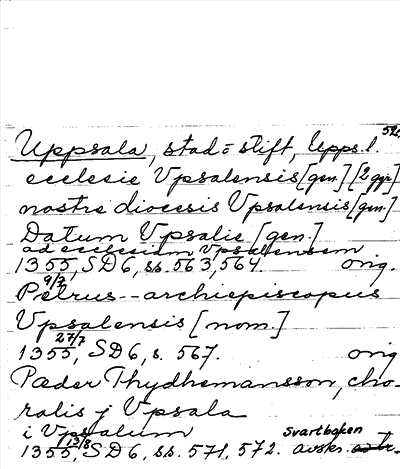 Uppsala, stad o. stift, Upps. l.
ecclesie Vpsalensis [gen.] [2 ggr]
nostre diocesis Vpsalensis [gen.]
Datum Vpsalie [gen.]
ad ecclesiam Vpsalensem
1355, SD6, ss. 563, 564. orig.
9/7
Petrus -- archiepiscopus
Vpsalensis [nom.]
27/7
1355, SD6, s. 567. orig
Pæder Thydhemansson, cho-
ralis j Vpsala
i Vpsalum
13/8 Svartboken
1355, SD6, ss. 571, 572. avskr.